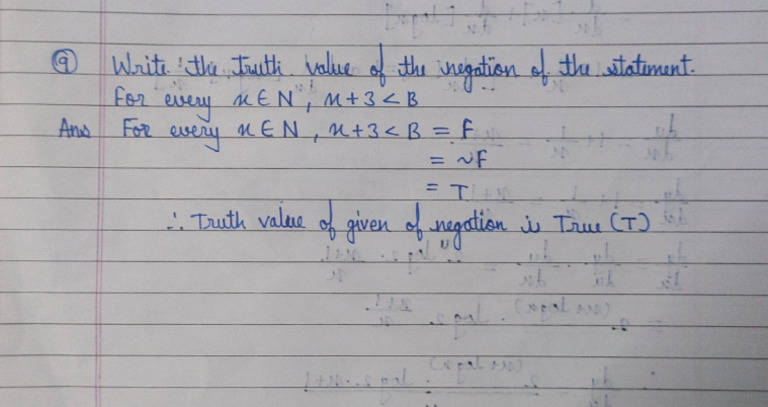 9 Write the truth value of the negation of the statement.
For every x ∈ N, x+3 < B
Ans For every x ∈ N, x+3 < B = F
= ~F
= T
∴ Truth value of given of negation is True (T)